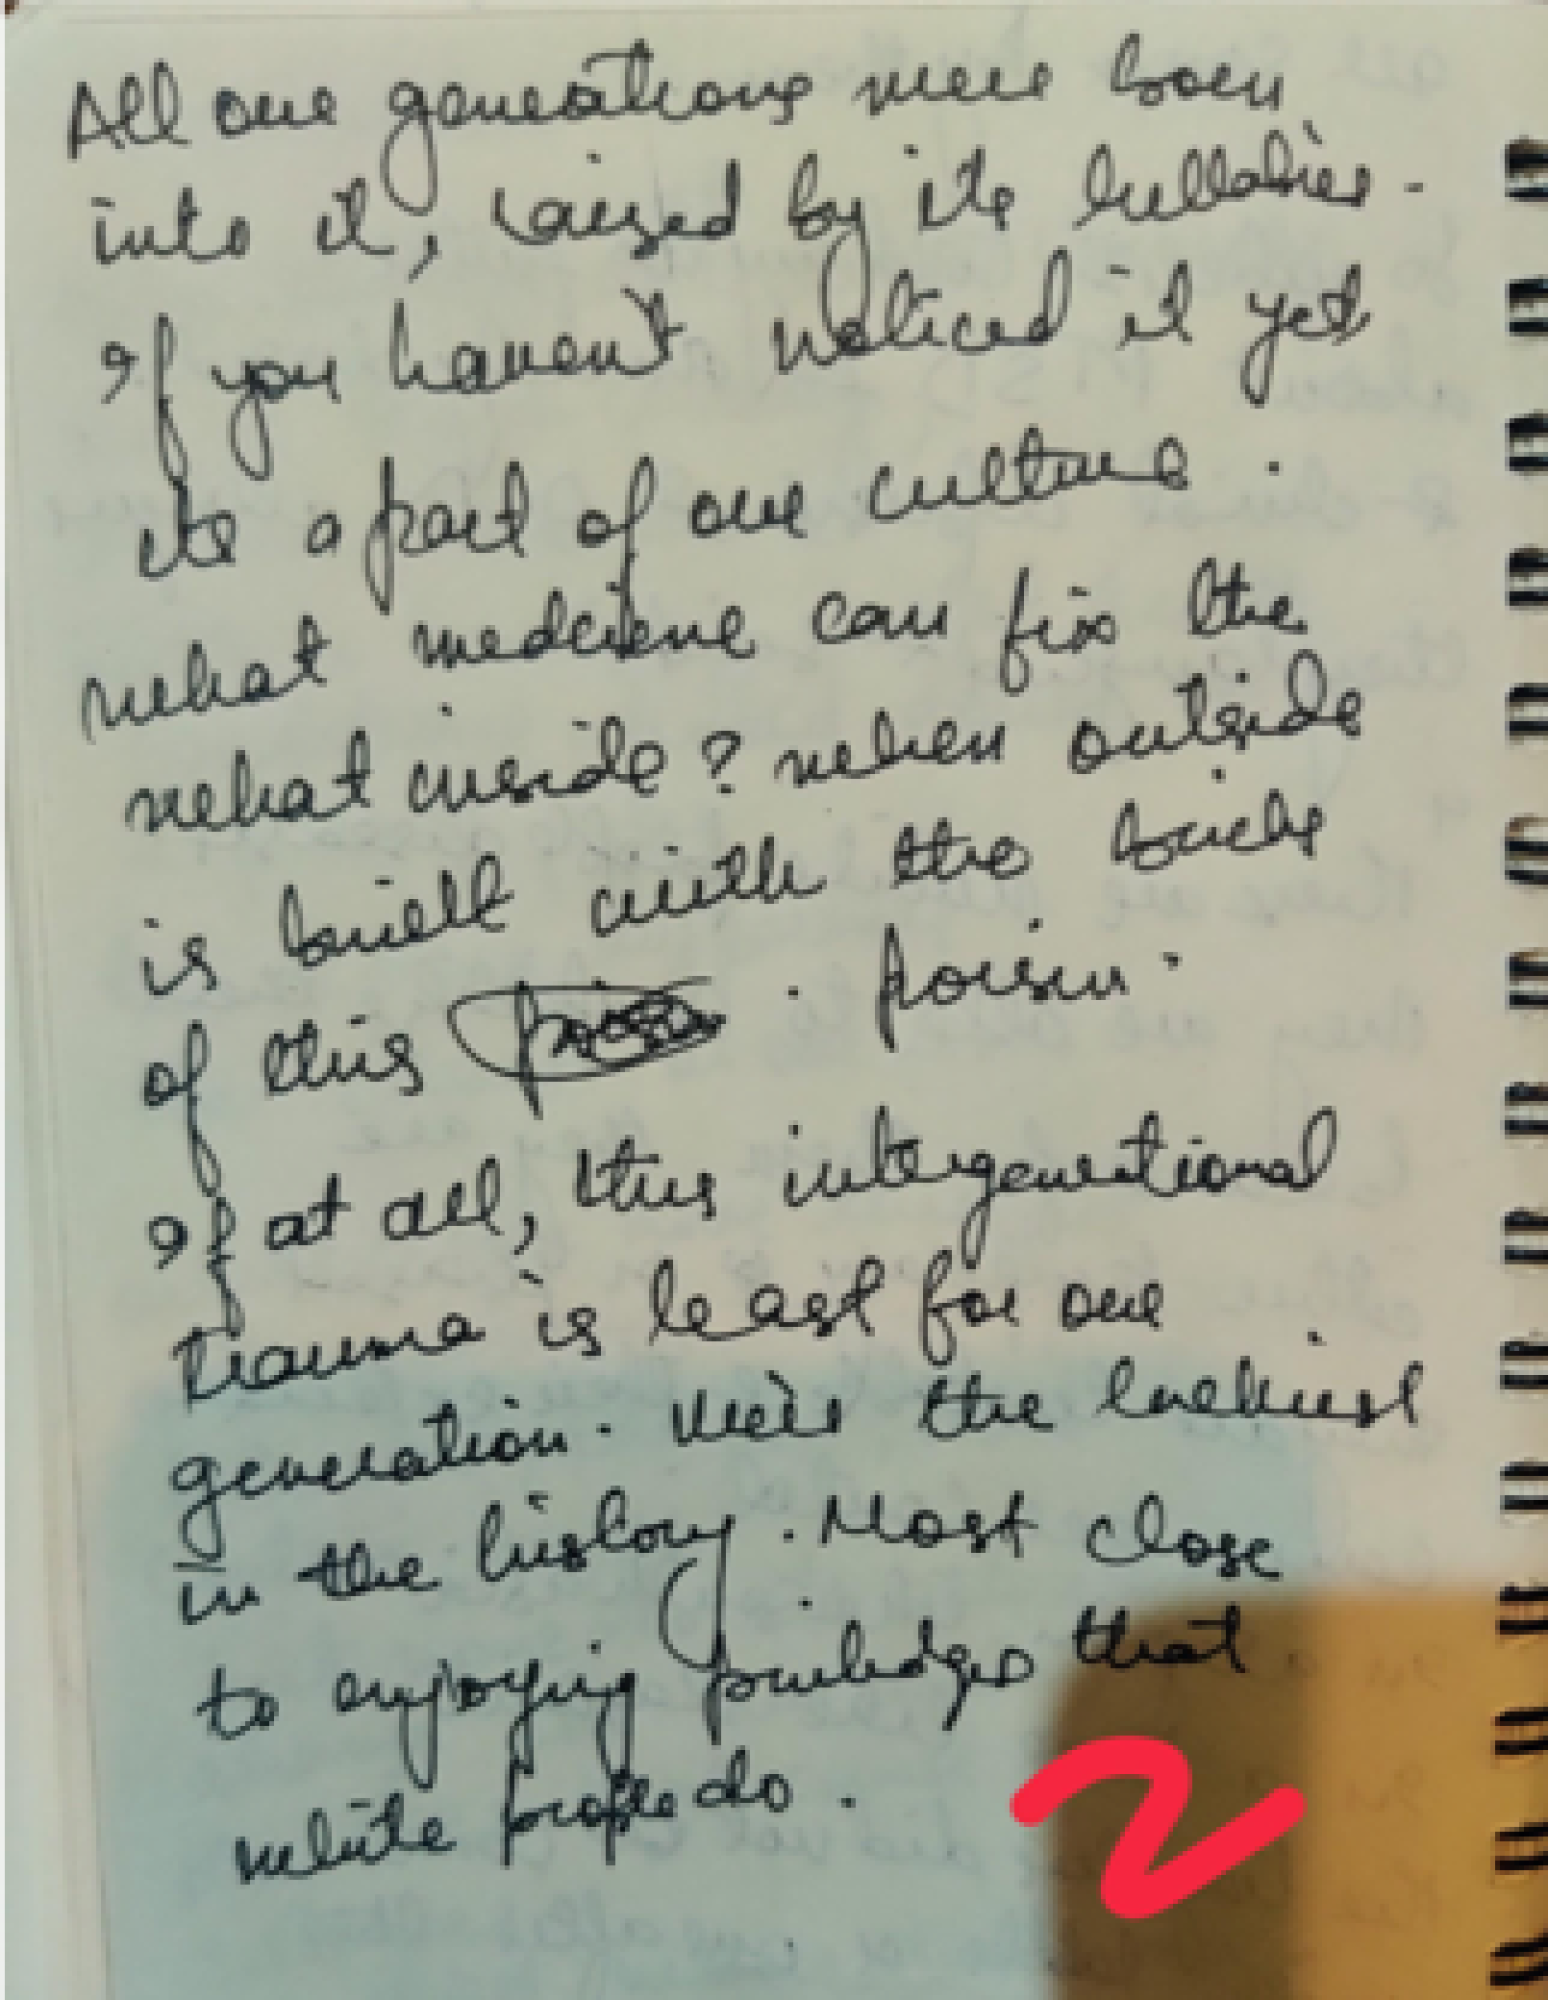 All our generations were born
into it, raised by its lullabies.
If you haven't noticed it yet
its a part of our culture.
what medicine can fix the
what inside? when outside
is built with the bricks
of this poison.
If at all, this intergenerational
trauma is least for our
generation. We're the luckiest
in the history. Most close
to enjoying priviledges that
white people do.
2